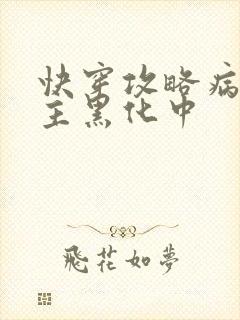 快穿攻略病
主黑化中
飛花如夢